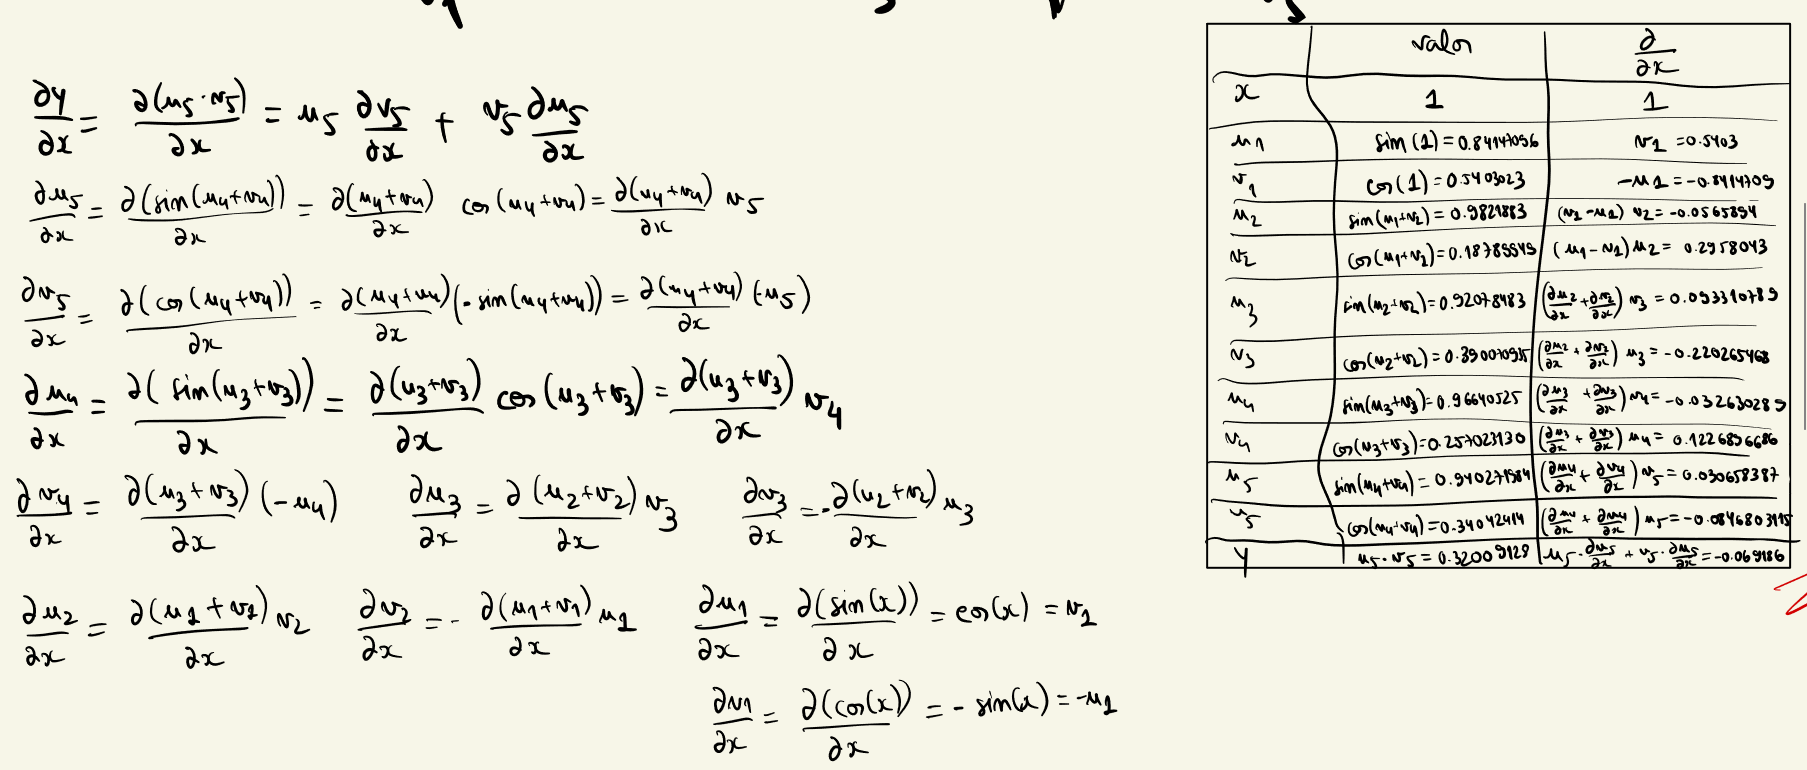 ∂y/∂x = ∂(u₅·v₅)/∂x = u₅ ∂v₅/∂x + v₅ ∂u₅/∂x
∂u₅/∂x = ∂(sin(u₄+v₄))/∂x = ∂(u₄+v₄)/∂x cos(u₄+v₄) = ∂(u₄+v₄)/∂x v₅
∂v₅/∂x = ∂(cos(u₄+v₄))/∂x = ∂(u₄+v₄)/∂x (-sin(u₄+v₄)) = ∂(u₄+v₄)/∂x (-u₅)
∂u₄/∂x = ∂(sin(u₃+v₃))/∂x = ∂(u₃+v₃)/∂x cos(u₃+v₃) = ∂(u₃+v₃)/∂x v₄
∂v₄/∂x = ∂(u₃+v₃)/∂x (-u₄) ∂u₃/∂x = ∂(u₂+v₂)/∂x v₃ ∂v₃/∂x = -∂(u₂+v₂)/∂x u₃
∂u₂/∂x = ∂(u₁+v₁)/∂x v₂ ∂v₂/∂x = - ∂(u₁+v₁)/∂x u₁ ∂u₁/∂x = ∂(sin(x))/∂x = cos(x) = v₁
∂v₁/∂x = ∂(cos(x))/∂x = - sin(x) = -u₁
valor ∂/∂x
x 1 1
u₁ sin(1) = 0.84147096 v₁ = 0.5403
v₁ cos(1) = 0.5403023 -u₁ = -0.8414709
u₂ sin(u₁+v₂) = 0.9821883 (v₁-u₁) v₂ = -0.0565894
v₂ cos(u₁+v₂) = 0.18789549 (u₁-v₁) u₂ = 0.2958043
u₃ sin(u₂+v₂) = 0.92078483 (∂u₂/∂x + ∂v₂/∂x) v₃ = 0.093310789
v₃ cos(u₂+v₂) = 0.390070935 (∂u₂/∂x + ∂v₂/∂x) u₃ = -0.220265468
u₄ sin(u₃+v₃) = 0.96640525 (∂u₃/∂x + ∂v₃/∂x) v₄ = -0.032630289
v₄ cos(u₃+v₃) = 0.257023130 (∂u₃/∂x + ∂v₃/∂x) u₄ = 0.1226896686
u₅ sin(u₄+v₄) = 0.940271984 (∂u₄/∂x + ∂v₄/∂x) v₅ = 0.030658387
v₅ cos(u₄+v₄) = 0.34042414 (∂u₄/∂x + ∂v₄/∂x) u₅ = -0.0846803915
y u₅·v₅ = 0.32009128 u₅·∂v₅/∂x + v₅·∂u₅/∂x = -0.069186